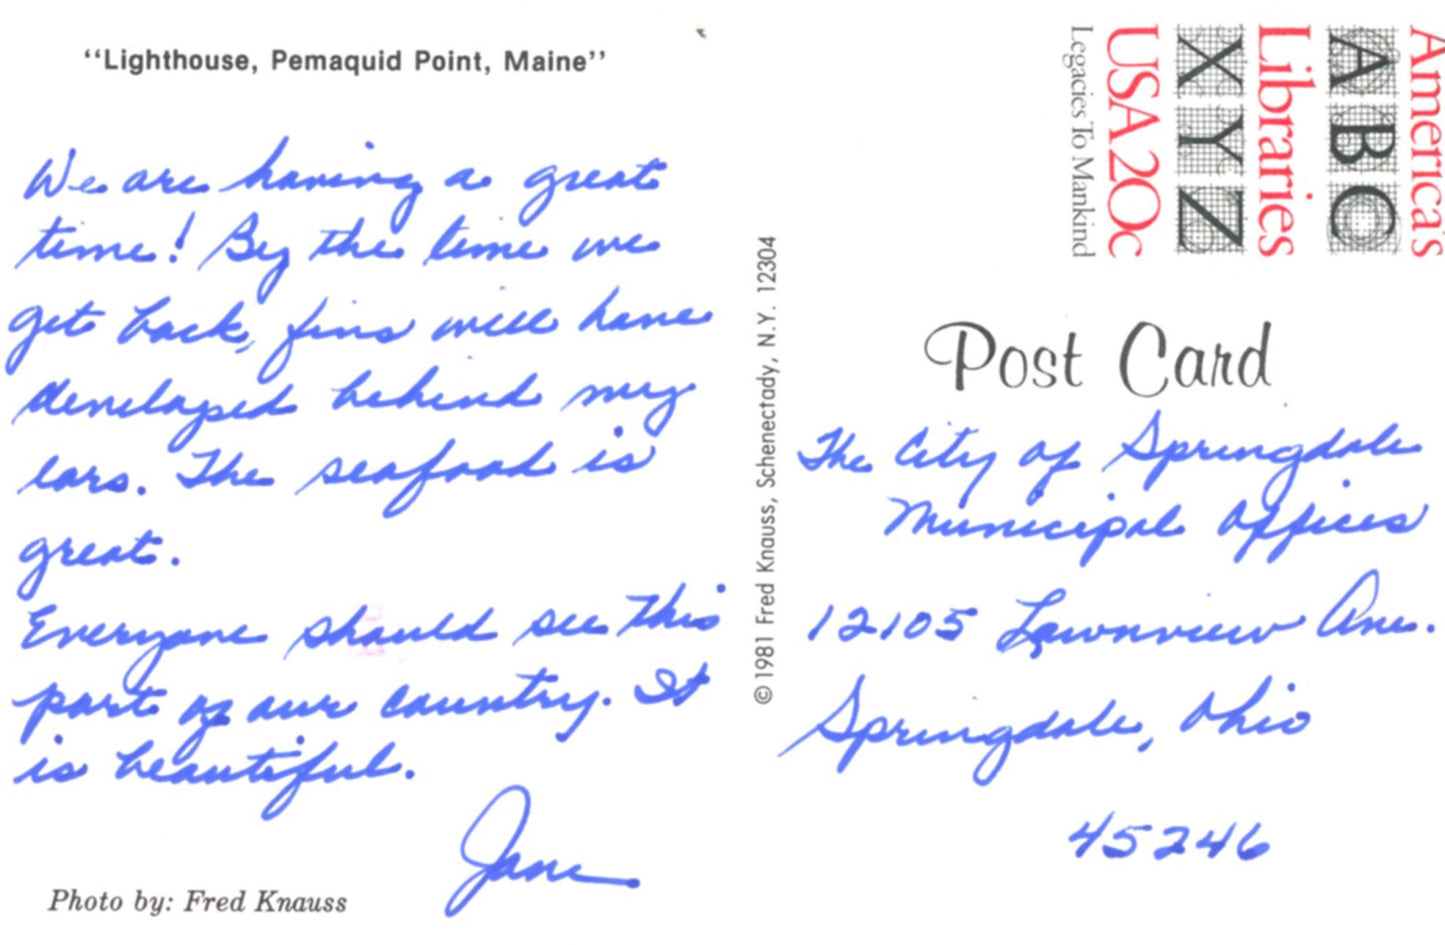 "Lighthouse, Pemaquid Point, Maine"
We are having a great
time! By the time we
get back, fins will have
developed behind my
ears. The seafood is
great.
Everyone should see this
part of our country. It
is beautiful.
Jane
Photo by: Fred Knauss
©1981 Fred Knauss, Schenectady, N.Y. 12304
America's
ABC
Libraries
XYZ
USA 20c
Legacies To Mankind
Post Card
The City of Springdale
Municipal Offices
12105 Lawnview Ave.
Springdale, Ohio
45246